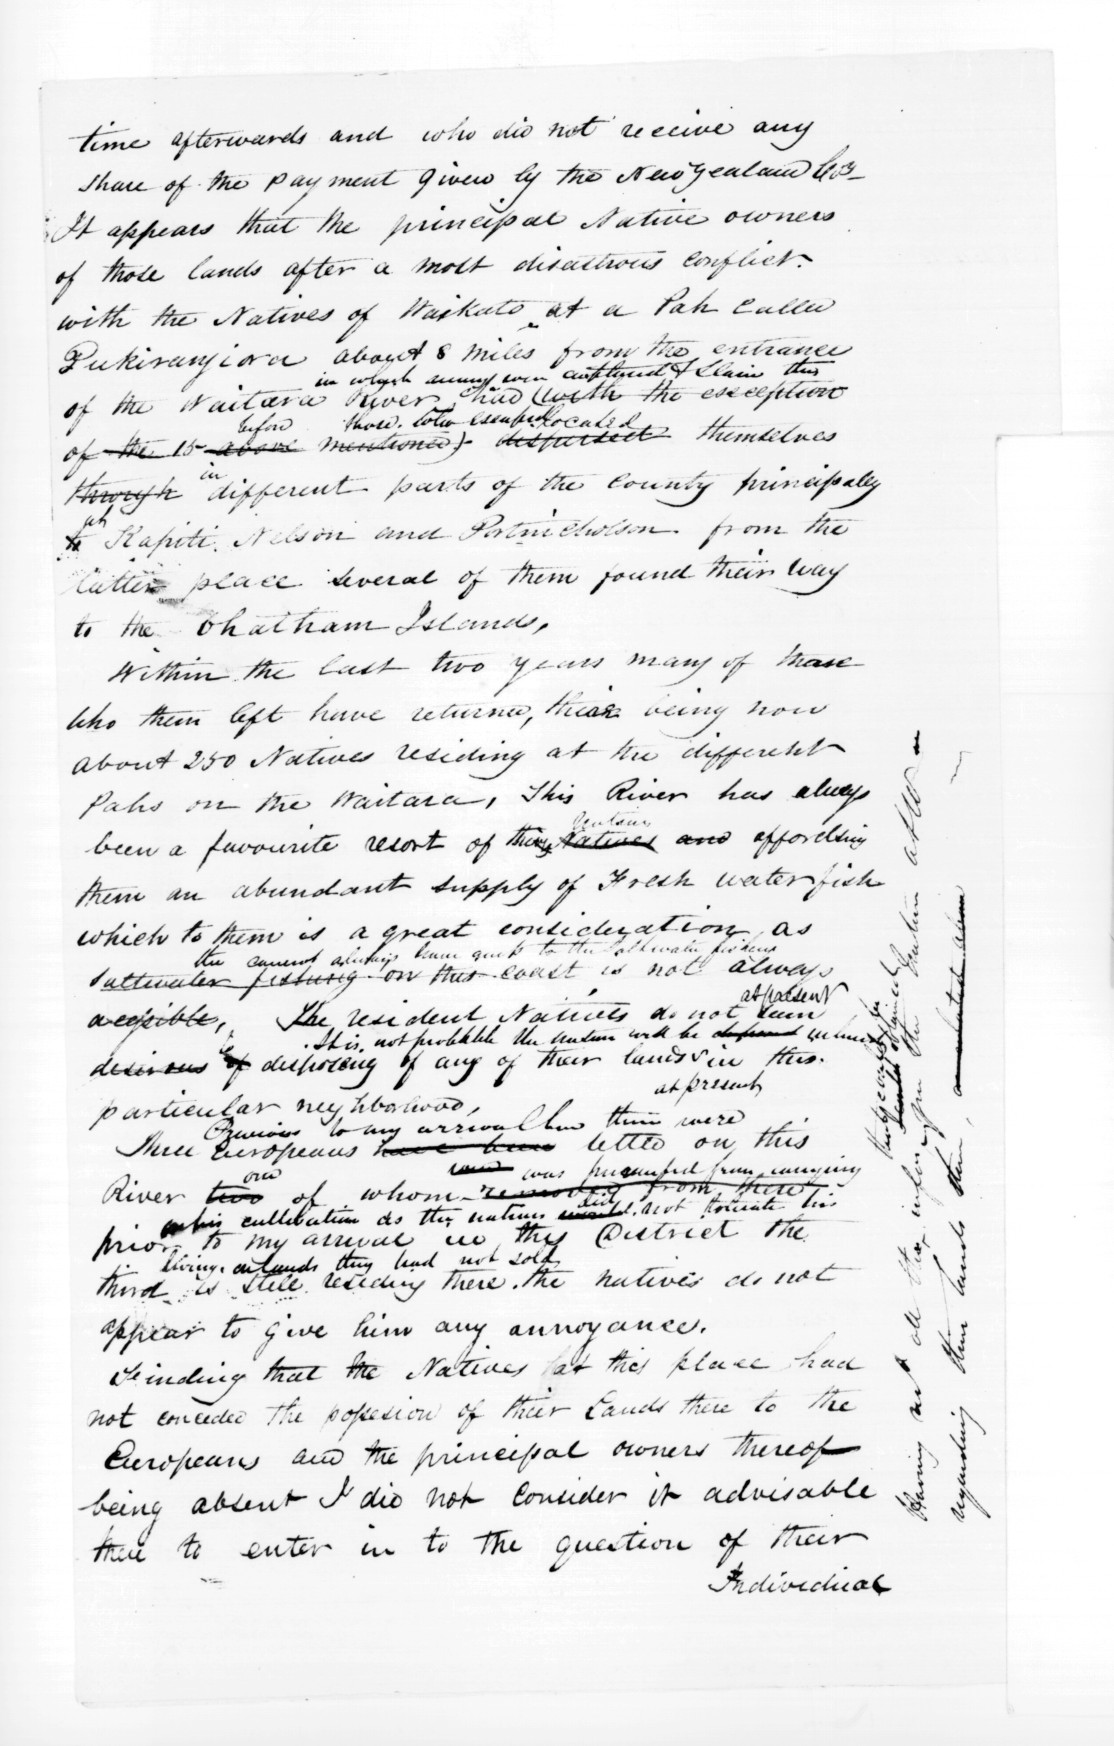 time afterwards and who did not receive any
share of the payment given by the New Zealand Coy
It appears that the principal Native owners
of those lands after a most disastrous conflict
with the Natives of Waikato at a Pah called
Pukirangiora about 8 miles from the entrance
in which many were captured & slain this
of the Waitara River, had (with the exception
before those who escaped located
of the 15 above mentioned) dispersed themselves
in
through different parts of the County principaley
at
to Kapiti, Nelson and Portnicholson from the
latter place several of them found their way
to the Chatham Islands,
Within the last two years many of those
who them left have returned, their being now
about 250 Natives residing at the different
Pahs on the Waitara, This River has always
been a favourite resort of Natives and affording
them an abundant supply of Fresh water fish
which to them is a great consideration, as
the cannot always have to the saltwater
saltwater fishing on this coast is not always
accessible, The resident Natives do not seem
at present
It is not probable the natives will be
desirous of disposing of any of their lands in this
at present
particular neighborhood,
Previous to my arrival here there were
Three Europeans have been settled on this
one was prevented from carrying
River two of whom removed from there
on his cultivation as the natives did not
prior to my arrival in this District the
living on lands they had not sold
third is still residing there. the natives do not
appear to give him any annoyance.
Finding that the Natives at this place had
not conceded the possesion of their Lands there to the
Europeans and the principal owners thereof
being absent I did not consider it advisable
there to enter in to the question of their
Individual
Having not
regarding their lands then,